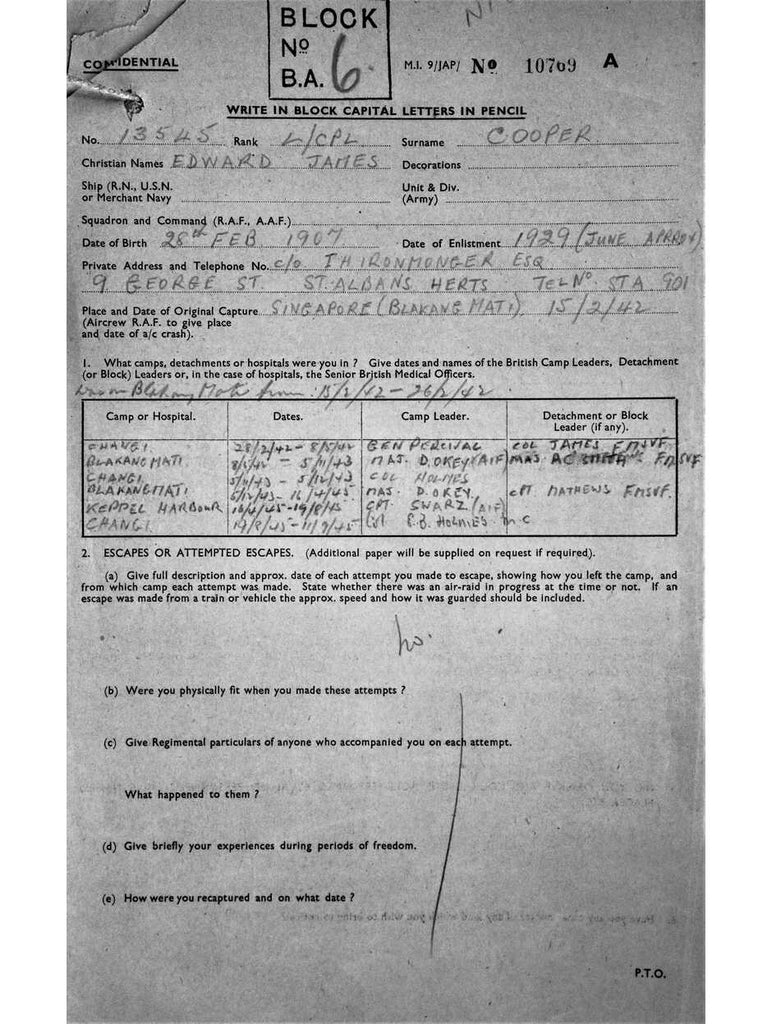 BLOCK
No
B.A. 6
CONFIDENTIAL
M.I. 9/JAP/ No 10769 A
WRITE IN BLOCK CAPITAL LETTERS IN PENCIL
No. 13545 Rank L/CPL Surname COOPER
Christian Names EDWARD JAMES Decorations
Ship (R.N., U.S.N. or Merchant Navy
Unit & Div. (Army)
Squadron and Command (R.A.F., A.A.F.)
Date of Birth 28th FEB 1907 Date of Enlistment 1929 (JUNE APRROX)
Private Address and Telephone No. c/o T H IRONMONGER ESQ
9 GEORGE ST. ST. ALBANS HERTS TEL No STA 901
Place and Date of Original Capture SINGAPORE (BLAKANG MATI) 15/2/42
(Aircrew R.A.F. to give place
and date of a/c crash).
1. What camps, detachments or hospitals were you in ? Give dates and names of the British Camp Leaders, Detachment
(or Block) Leaders or, in the case of hospitals, the Senior British Medical Officers.
Blakang Mati from 15/2/42 – 26/2/42
Camp or Hospital. Dates. Camp Leader. Detachment or Block Leader (if any).
CHANGI 28/2/42 – 8/5/42 GEN PERCIVAL COL JAMES FMSVF
BLAKANG MATI 8/5/42 – 5/11/43 MAJ. D. OKEY (AIF) MAJ A C SMITH FMSVF
CHANGI 5/11/43 – 5/12/43 COL HOLMES
BLAKANG MATI 6/12/43 – 16/4/45 MAJ. D. OKEY. CPT. MATHEWS FMSVF.
KEPPEL HARBOUR 16/4/45 – 19/8/45 CPT SWARZ (AIF)
CHANGI 19/8/45 – 11/9/45 Col E.B. HOLMES M C
2. ESCAPES OR ATTEMPTED ESCAPES. (Additional paper will be supplied on request if required).
(a) Give full description and approx. date of each attempt you made to escape, showing how you left the camp, and
from which camp each attempt was made. State whether there was an air-raid in progress at the time or not. If an
escape was made from a train or vehicle the approx. speed and how it was guarded should be included.
No.
(b) Were you physically fit when you made these attempts ?
(c) Give Regimental particulars of anyone who accompanied you on each attempt.
What happened to them ?
(d) Give briefly your experiences during periods of freedom.
(e) How were you recaptured and on what date ?
P.T.O.